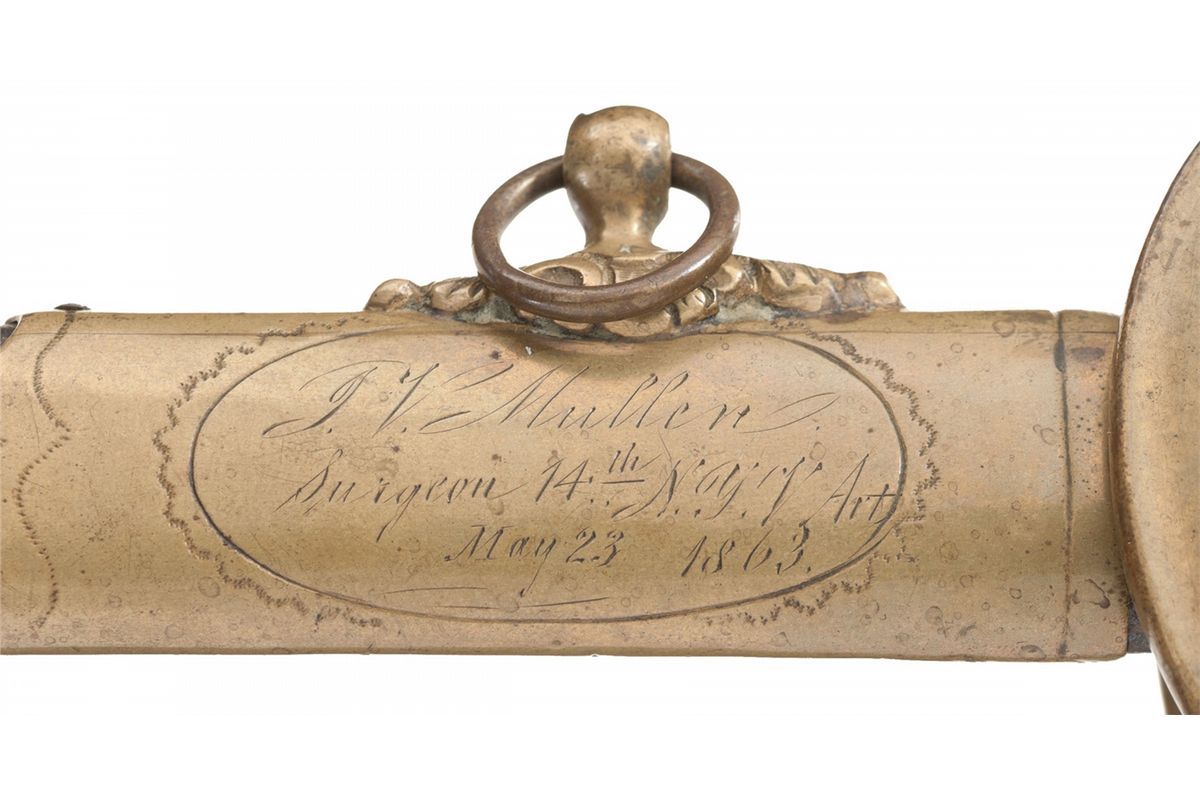 J. V. Mullen.
Surgeon 14th N.Y.V. Art
May 23 1863.